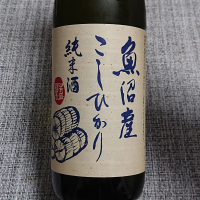 魚沼産
こしひかり
純米酒